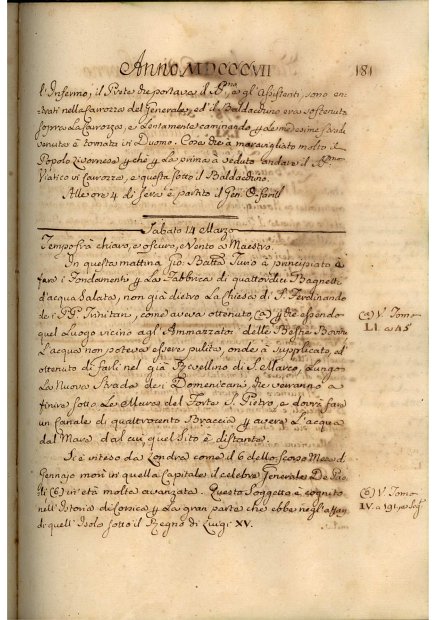 Anno MDCCCVII
181
l'Infermo, il Prete che portava il SS.mo, e gl'Assistenti, sono en-
trati nella Carrozza del Generale, ed il Baldacchino era sostenuto
sopra la Carrozza, e lentamente caminando p le medesime strade
venute è tornato in Duomo. Cosa che à maravigliato molto il
Popolo Livornese p chè p la prima à veduto andare il SS.mo
Viatico in Carrozza, e questa sotto il Baldacchino.
Alle ore 4 di sera è partito il Gen.
Sabato 14 Marzo
Tempo frà chiaro, e oscuro, e Vento a Maestro.
In questa mattina Gio: Batta à principiato à
fare i Fondamenti p la Fabbrica di quattordici Bagnetti
d'acqua Salata, non già dietro la Chiesa di S. Ferdinando
de i PP. Trinitari, come aveva ottenuto (a) p chè essendo
quel Luogo vicino agl'Ammazzatoi delle Bestie
L'acqua non poteva essere pulita, onde à supplicato, ed
ottenuto di farli nel già Rivellino di S. Marco, Lungo
La Nuova Strada de i Domenicani, che verranno a
finire sotto Le Mura del Forte S. Pietro, e dovrà fare
un Canale di quattrocento Braccia p avere L'acqua
dal Mare, dal cui quel Sito è distante.
Si è inteso da Londra come il 6 dello scorso Mese di
Gennajo morì in quella Capitale il celebre Generale De Pao-
li (b) in età molto avanzata. Questo Soggetto è cognito
nell'Istoria di Corsica p La gran parte che ebbe negl'affari
di quell'Isola sotto il Regno di Luigi XV.
(a) V. Tomo
LI. a 45
(b) V. Tomo
IV. a 191, e seg.